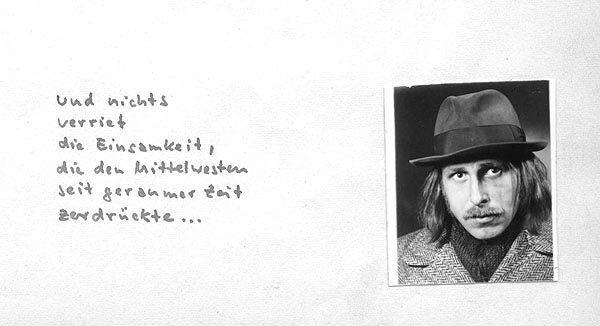 und nichts
verriet
die Einsamkeit,
die den Mittelwesten
seit geraumer Zeit
zerdrückte...